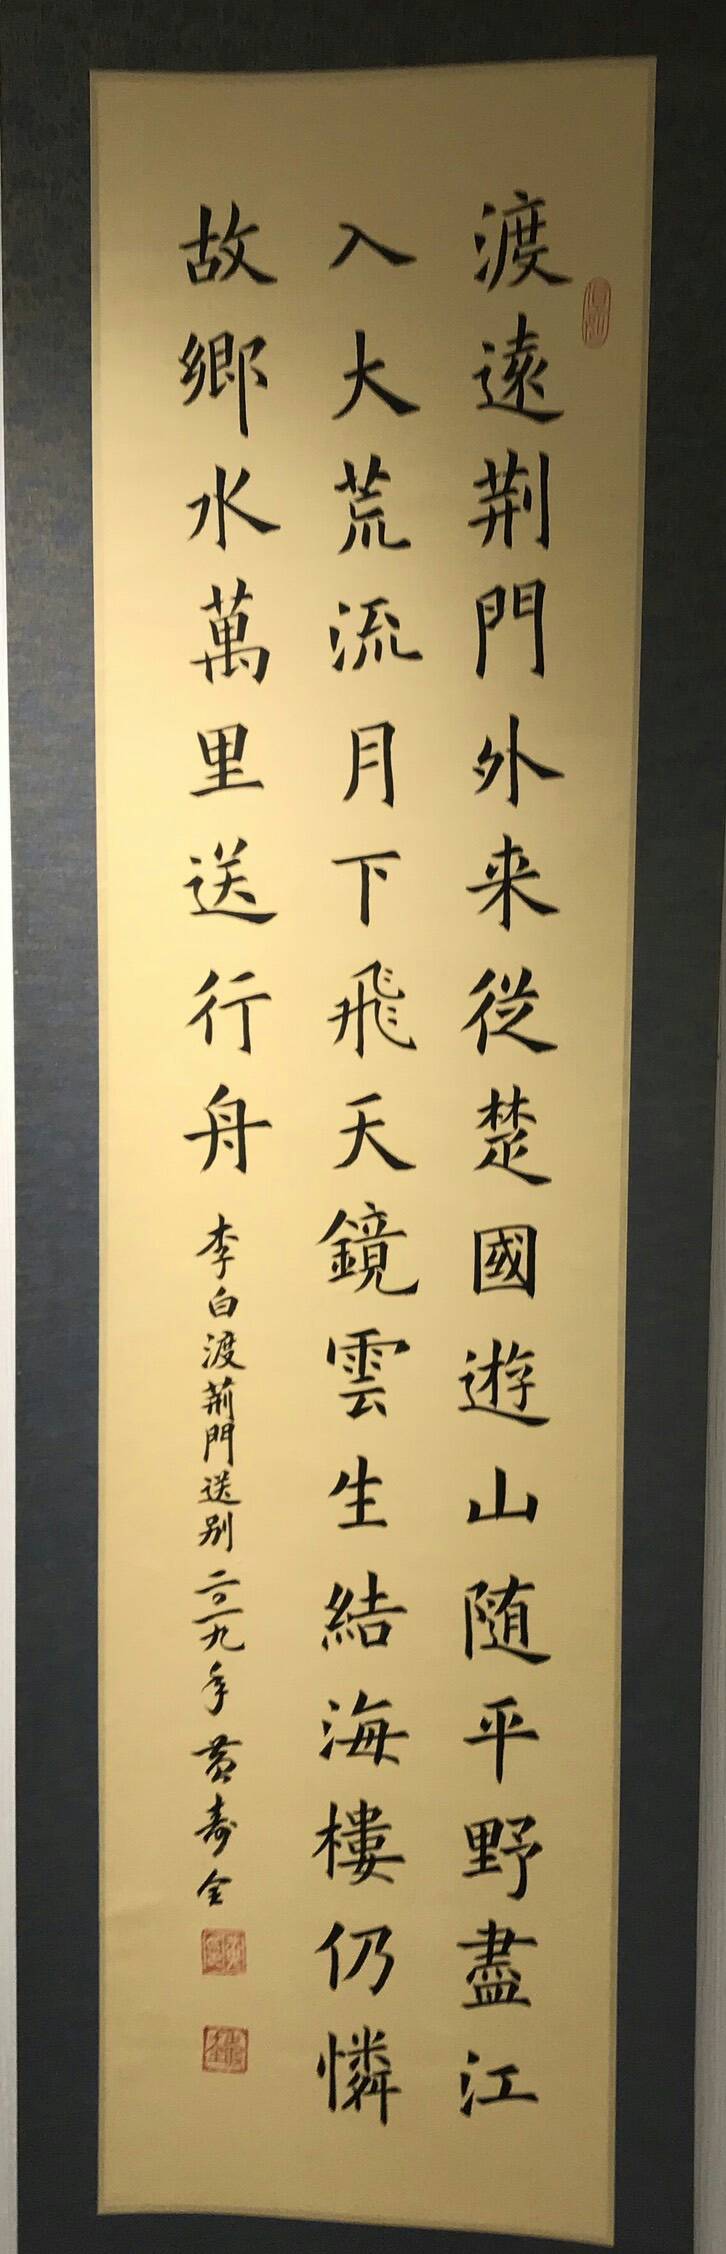 渡遠荆門外来從楚國遊山随平野盡江
入大荒流月下飛天鏡雲生結海樓仍憐
故鄉水萬里送行舟 李白渡荆門送别 二〇一九年 黄寿全